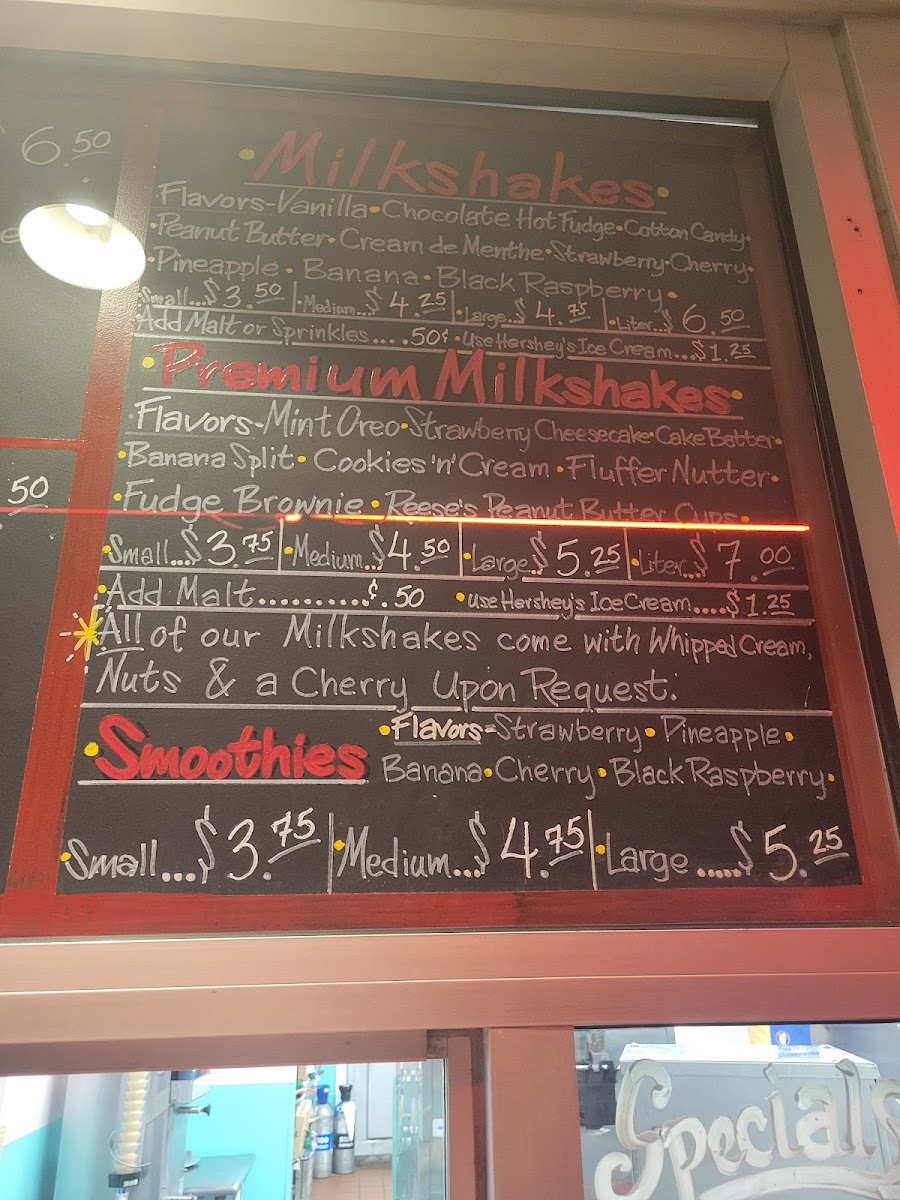 6.50
• Milkshakes •
Flavors-Vanilla•Chocolate Hot Fudge•Cotton Candy•
•Peanut Butter•Cream de Menthe•Strawberry•Cherry•
•Pineapple•Banana•Black Raspberry•
•Small...$3.50 |•Medium...$4.25 |•Large...$4.75 |•Liter...$6.50
•Add Malt or Sprinkles.....50¢•Use Hershey's Ice Cream...$1.25
•Premium Milkshakes•
Flavors-Mint Oreo•Strawberry Cheesecake•Cake Batter•
•Banana Split•Cookies 'n' Cream•Fluffer Nutter•
•Fudge Brownie•Reese's Peanut Butter Cups•
50
•Small...$3.75 |•Medium...$4.50 |•Large...$5.25 |•Liter...$7.00
•Add Malt..........¢.50 •Use Hershey's Ice Cream....$1.25
All of our Milkshakes come with Whipped Cream,
Nuts & a Cherry Upon Request.
•Smoothies
•Flavors-Strawberry•Pineapple•
Banana•Cherry•Black Raspberry•
•Small...$3.75 |•Medium...$4.75 |•Large.....$5.25
Specials